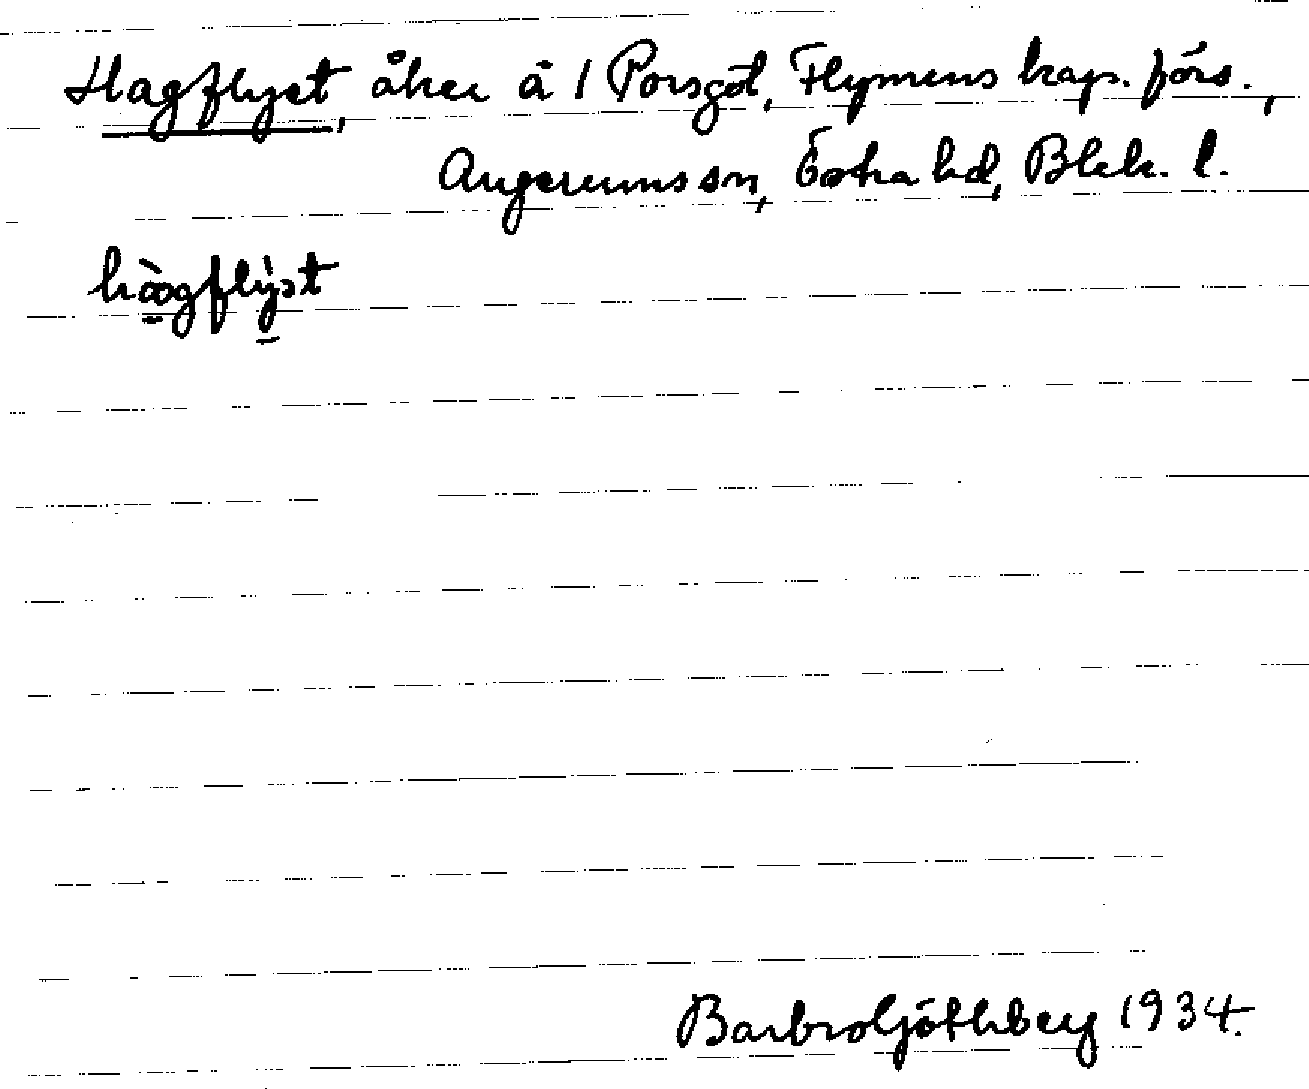 Hagflyet, åker å 1 Porsgöl, Flymens kap. förs.,
Augerums sn, Östra hd, Blek. l.
Barbro Göthberg 1934.